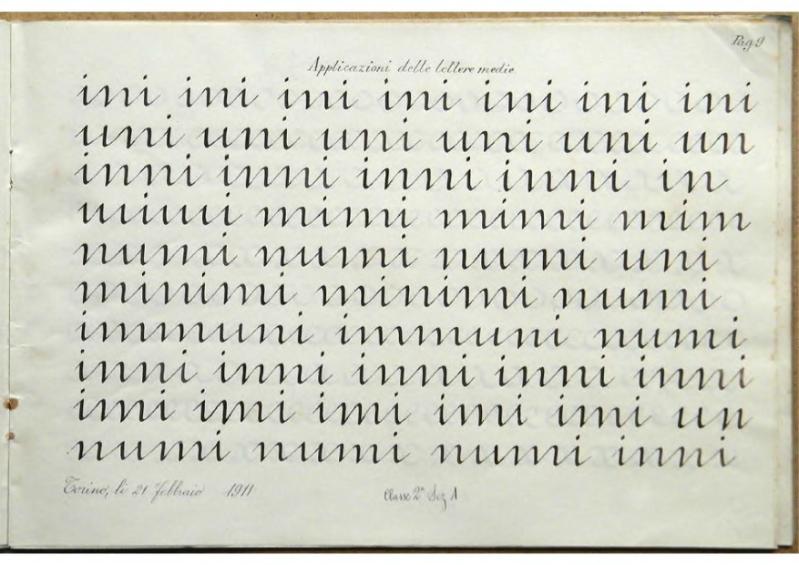 Pag 9
Applicazioni delle lettere medie
ini ini ini ini ini ini ini
uni uni uni uni uni un
inni inni inni inni in
mimi mimi mim
numi numi numi uni
minimi minimi numi
immuni immuni numi
inni inni inni inni inni
imi imi imi imi imi un
numi numi numi inni
Torino, li 21 febbraio 1911
Classe 2ª Sez 1